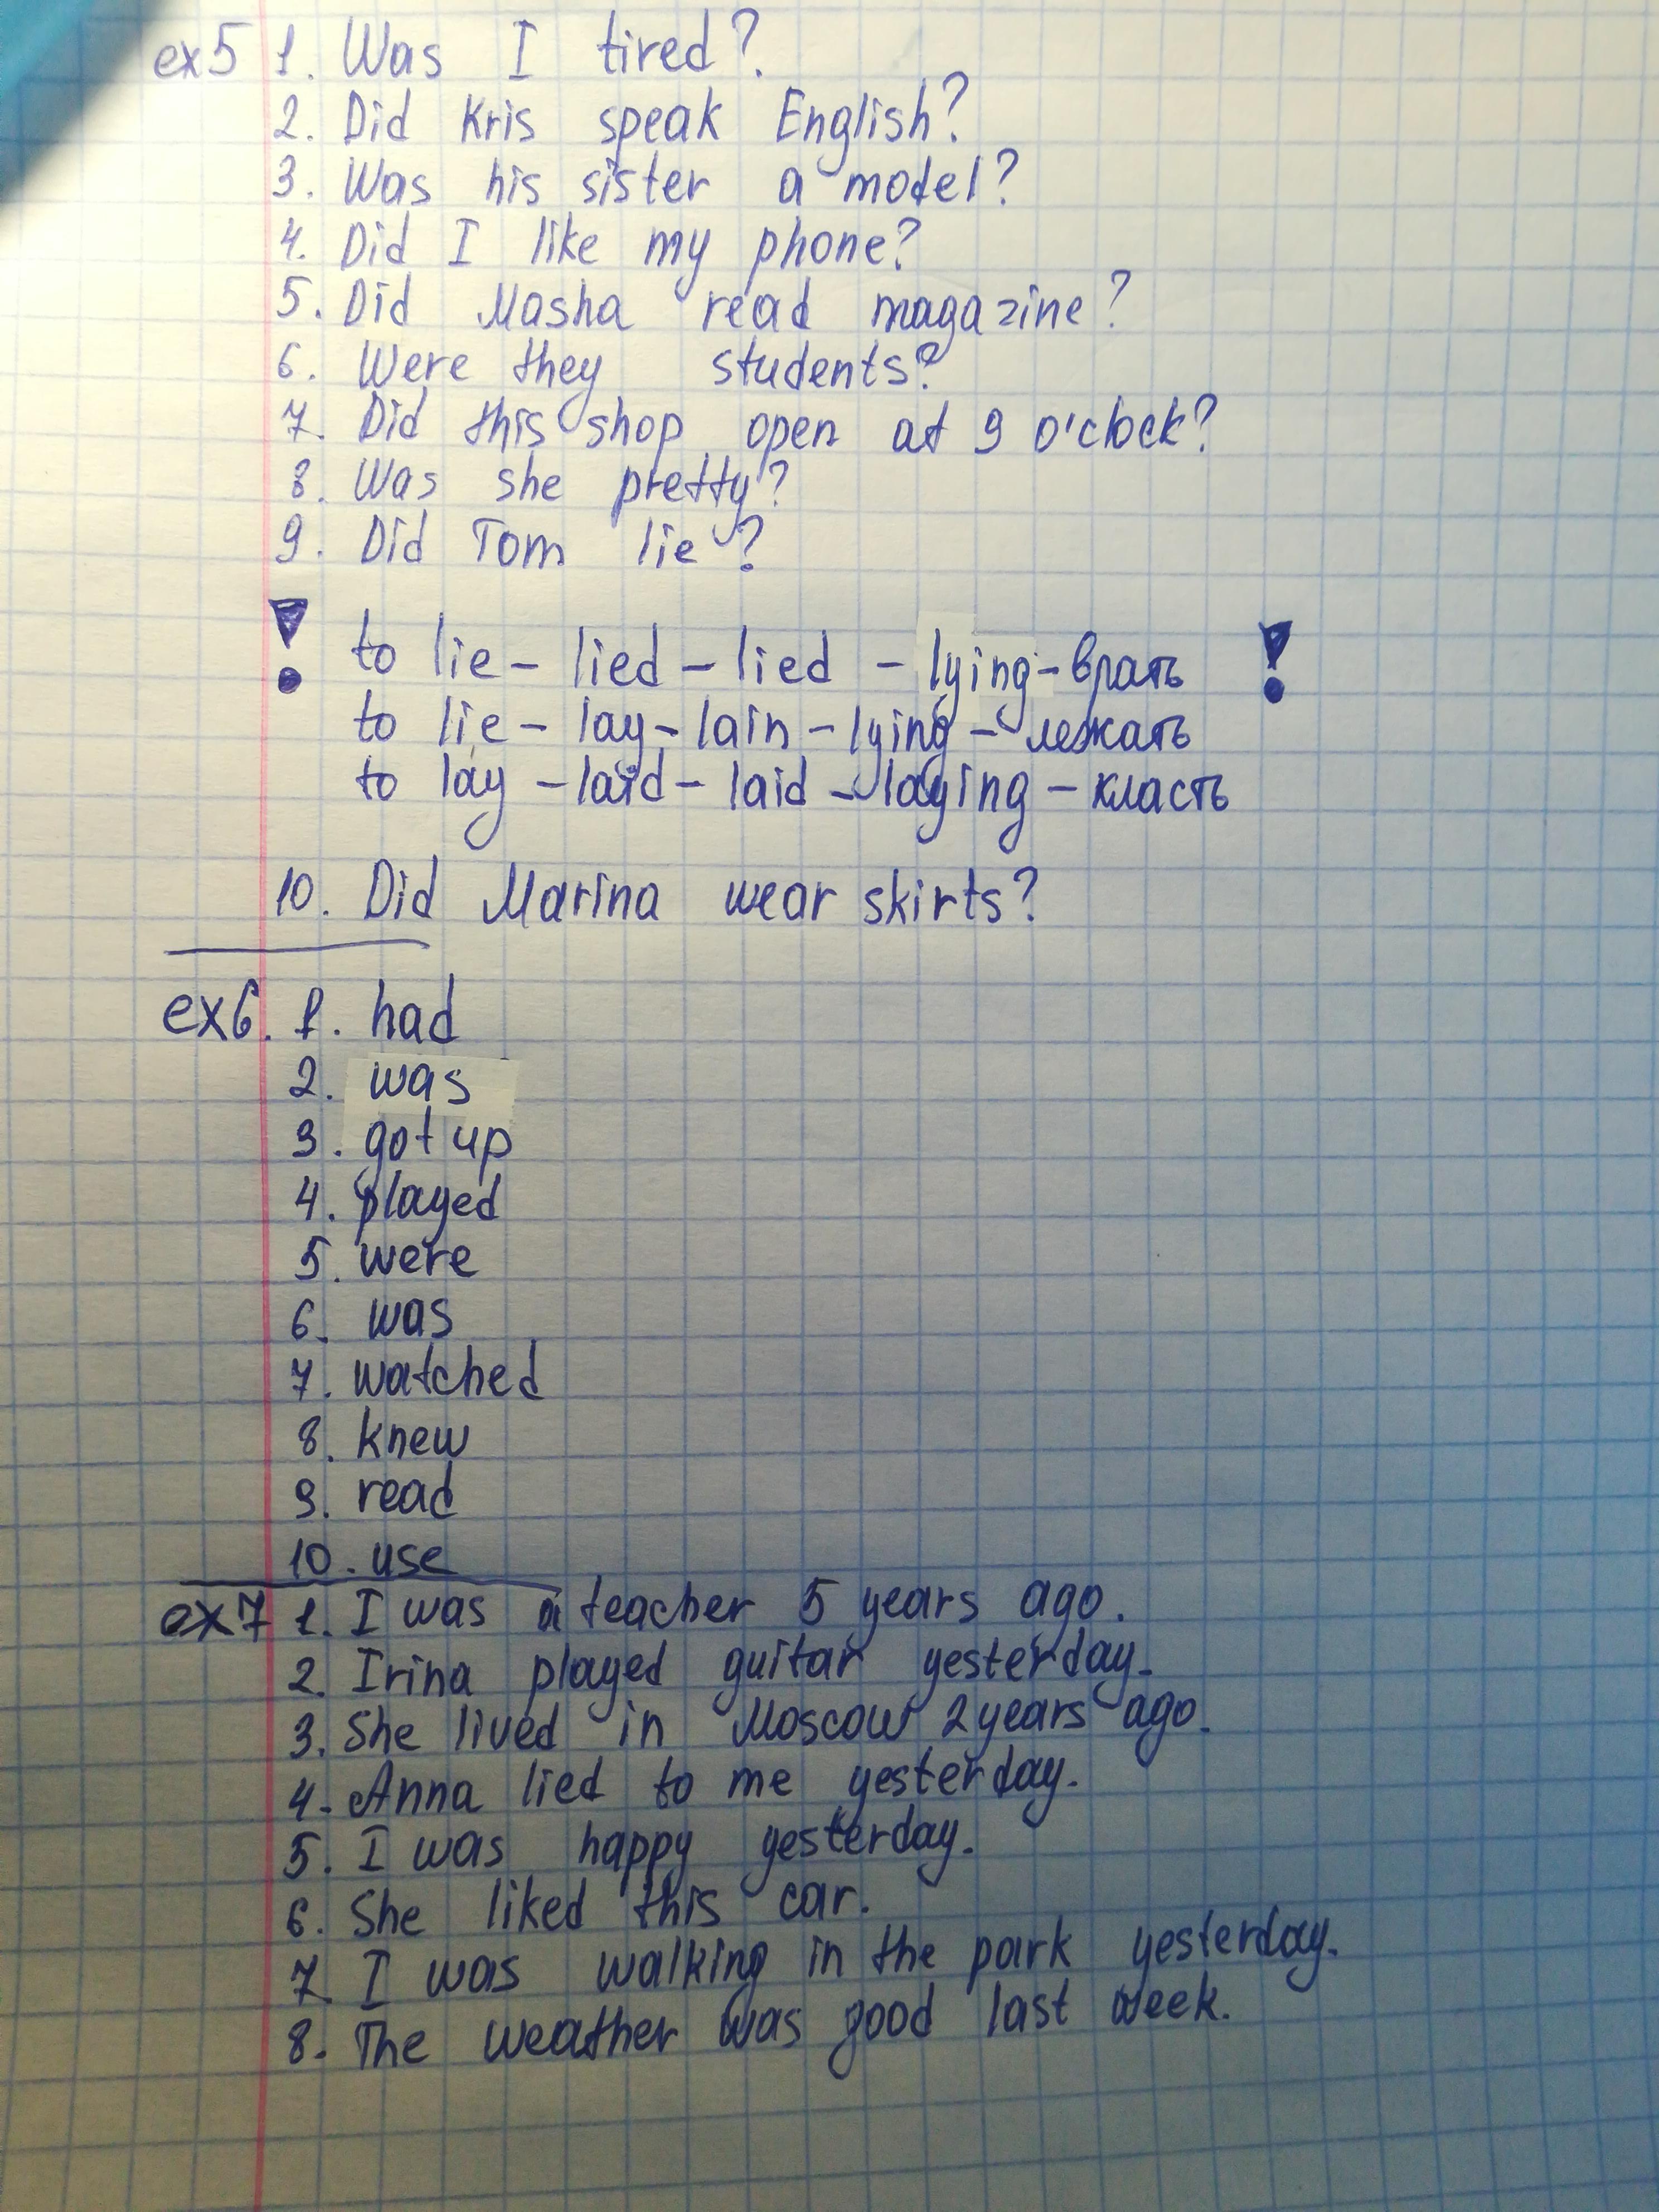 ex5 1. Was I tired?
2. Did Kris speak English?
3. Was his sister a model?
4. Did I like my phone?
5. Did Masha read magazine?
6. Were they students?
7. Did this shop open at 9 o'clock?
8. Was she pretty?
9. Did Tom lie?
! to lie – lied – lied – lying – врать !
to lie – lay – lain – lying – лежать
to lay – laid – laid – laying – класть
10. Did Marina wear skirts?
ex6. 1. had
2. was
3. got up
4. played
5. were
6. was
7. watched
8. knew
9. read
10. use
ex7 1. I was a teacher 5 years ago.
2. Irina played guitar yesterday.
3. She lived in Moscow 2 years ago.
4. Anna lied to me yesterday.
5. I was happy yesterday.
6. She liked this car.
7. I was walking in the park yesterday.
8. The weather was good last week.